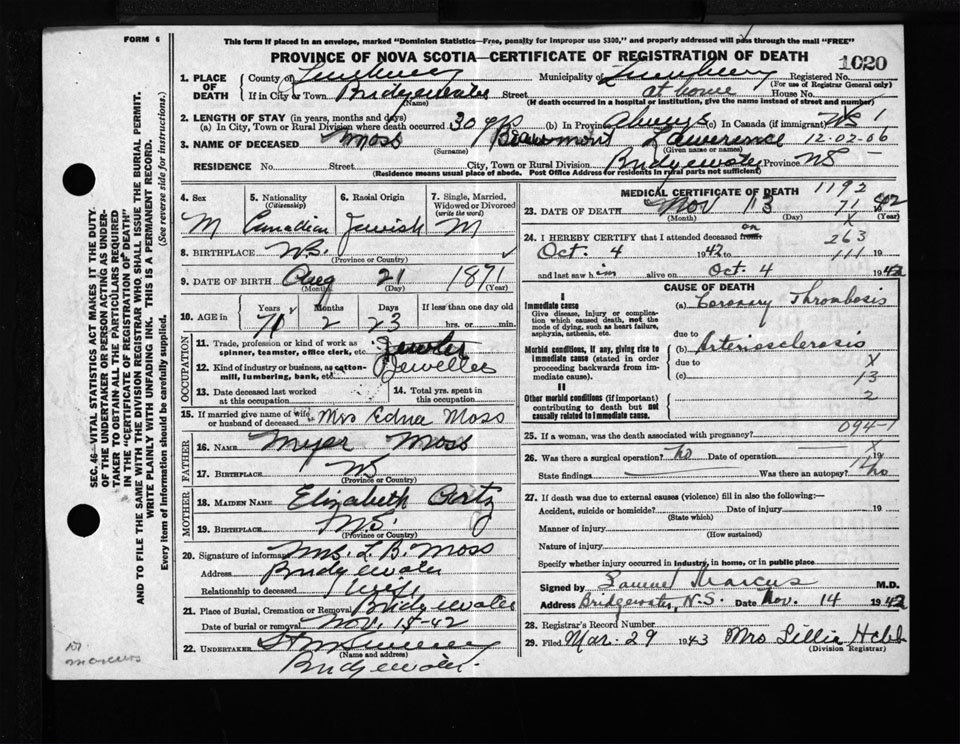 FORM 6
This form if placed in an envelope, marked "Dominion Statistics—Free, penalty for improper use $300," and properly addressed will pass through the mail "FREE"
PROVINCE OF NOVA SCOTIA—CERTIFICATE OF REGISTRATION OF DEATH
1020
1. PLACE OF DEATH { County of Lunenburg Municipality of Lunenburg Registered No.
(For use of Registrar General only)
If in City or Town Bridgewater Street at home House No.
(Name) (If death occurred in a hospital or institution, give the name instead of street and number)
2. LENGTH OF STAY (in years, months and days)
(a) In City, Town or Rural Division where death occurred 30 yrs (b) In Province Always (c) In Canada (if immigrant)
12-02-06
3. NAME OF DECEASED Moss Beaumont Lawerance
(Surname) (Given name or names)
RESIDENCE No. Street City, Town or Rural Division Bridgewater Province NS
(Residence means usual place of abode. Post Office Address for residents in rural parts not sufficient)
4. Sex M
5. Nationality (Citizenship) Canadian
6. Racial Origin Jewish
7. Single, Married, Widowed or Divorced (write the word) M
8. BIRTHPLACE
(Province or Country)
9. DATE OF BIRTH Aug 21 1871
(Month) (Day) (Year)
10. AGE in Years Months Days If less than one day old
2 23 hrs. or min.
OCCUPATION
11. Trade, profession or kind of work as spinner, teamster, office clerk, etc. Jeweler
12. Kind of industry or business, as cotton-mill, lumbering, bank, etc. Jeweller
13. Date deceased last worked at this occupation
14. Total yrs. spent in this occupation
15. If married give name of wife or husband of deceased Mrs Edna Moss
FATHER
16. NAME Myer Moss
17. BIRTHPLACE
(Province or Country)
MOTHER
18. MAIDEN NAME Elizabeth
19. BIRTHPLACE
(Province or Country)
20. Signature of informant Mrs. L. B. Moss
Address Bridgewater
Relationship to deceased Wife
21. Place of Burial, Cremation or Removal Bridgewater
Date of burial or removal Nov. 15-42
22. UNDERTAKER
(Name and address)
Bridgewater.
MEDICAL CERTIFICATE OF DEATH
1192
23. DATE OF DEATH Nov 13 71
(Month) (Day) (Year)
24. I HEREBY CERTIFY that I attended deceased on
263
Oct. 4 1942 to 111 19
and last saw him alive on Oct. 4 1942
CAUSE OF DEATH
I
Immediate cause
Give disease, injury or complication which caused death, not the mode of dying, such as heart failure, asphyxia, asthenia, etc.
(a) Coronary Thrombosis
due to
Morbid conditions, if any, giving rise to immediate cause (stated in order proceeding backwards from immediate cause).
(b) Arteriosclerosis
due to X
(c) 13
II
Other morbid conditions (if important) contributing to death but not causally related to immediate cause.
2
094-1
25. If a woman, was the death associated with pregnancy?
26. Was there a surgical operation? no Date of operation 19
State findings Was there an autopsy? no
27. If death was due to external causes (violence) fill in also the following:—
Accident, suicide or homicide? Date of injury 19
(State which)
Manner of injury
(How sustained)
Nature of injury
Specify whether injury occurred in industry, in home, or in public place
Signed by Samuel Marcus M.D.
Address Bridgewater, N.S. Date Nov. 14 1942
28. Registrar's Record Number
29. Filed Mar. 29 1943 Mrs Lillia Hebb
(Division Registrar)
SEC. 46—VITAL STATISTICS ACT MAKES IT THE DUTY OF THE UNDERTAKER OR PERSON ACTING AS UNDERTAKER TO OBTAIN ALL THE PARTICULARS REQUIRED IN THE "CERTIFICATE OF REGISTRATION OF DEATH"
AND TO FILE THE SAME WITH THE DIVISION REGISTRAR WHO SHALL ISSUE THE BURIAL PERMIT.
WRITE PLAINLY WITH UNFADING INK. THIS IS A PERMANENT RECORD.
Every item of information should be carefully supplied. (See reverse side for instructions.)
Dr. marcus